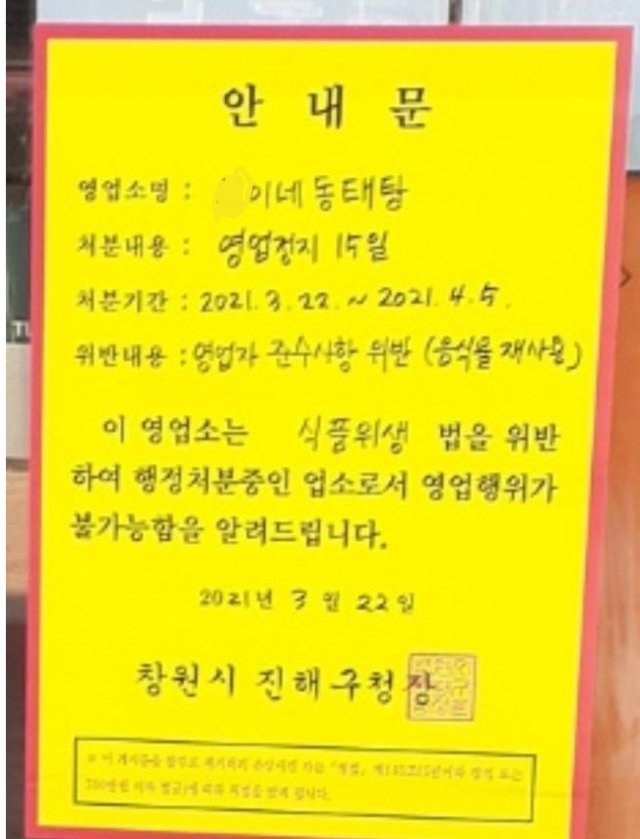 안 내 문
영업소명 : 이네 동태탕
처분내용 : 영업정지 15일
처분기간 : 2021. 3. 22. ~ 2021. 4. 5.
위반내용 : 영업자 준수사항 위반 (음식물 재사용)
이 영업소는 식품위생 법을 위반
하여 행정처분중인 업소로서 영업행위가
불가능함을 알려드립니다.
2021년 3월 22일
창원시 진해구청장
※ 이 게시문을 함부로 제거하거나 손상시킨 자는 「형법」 제140조